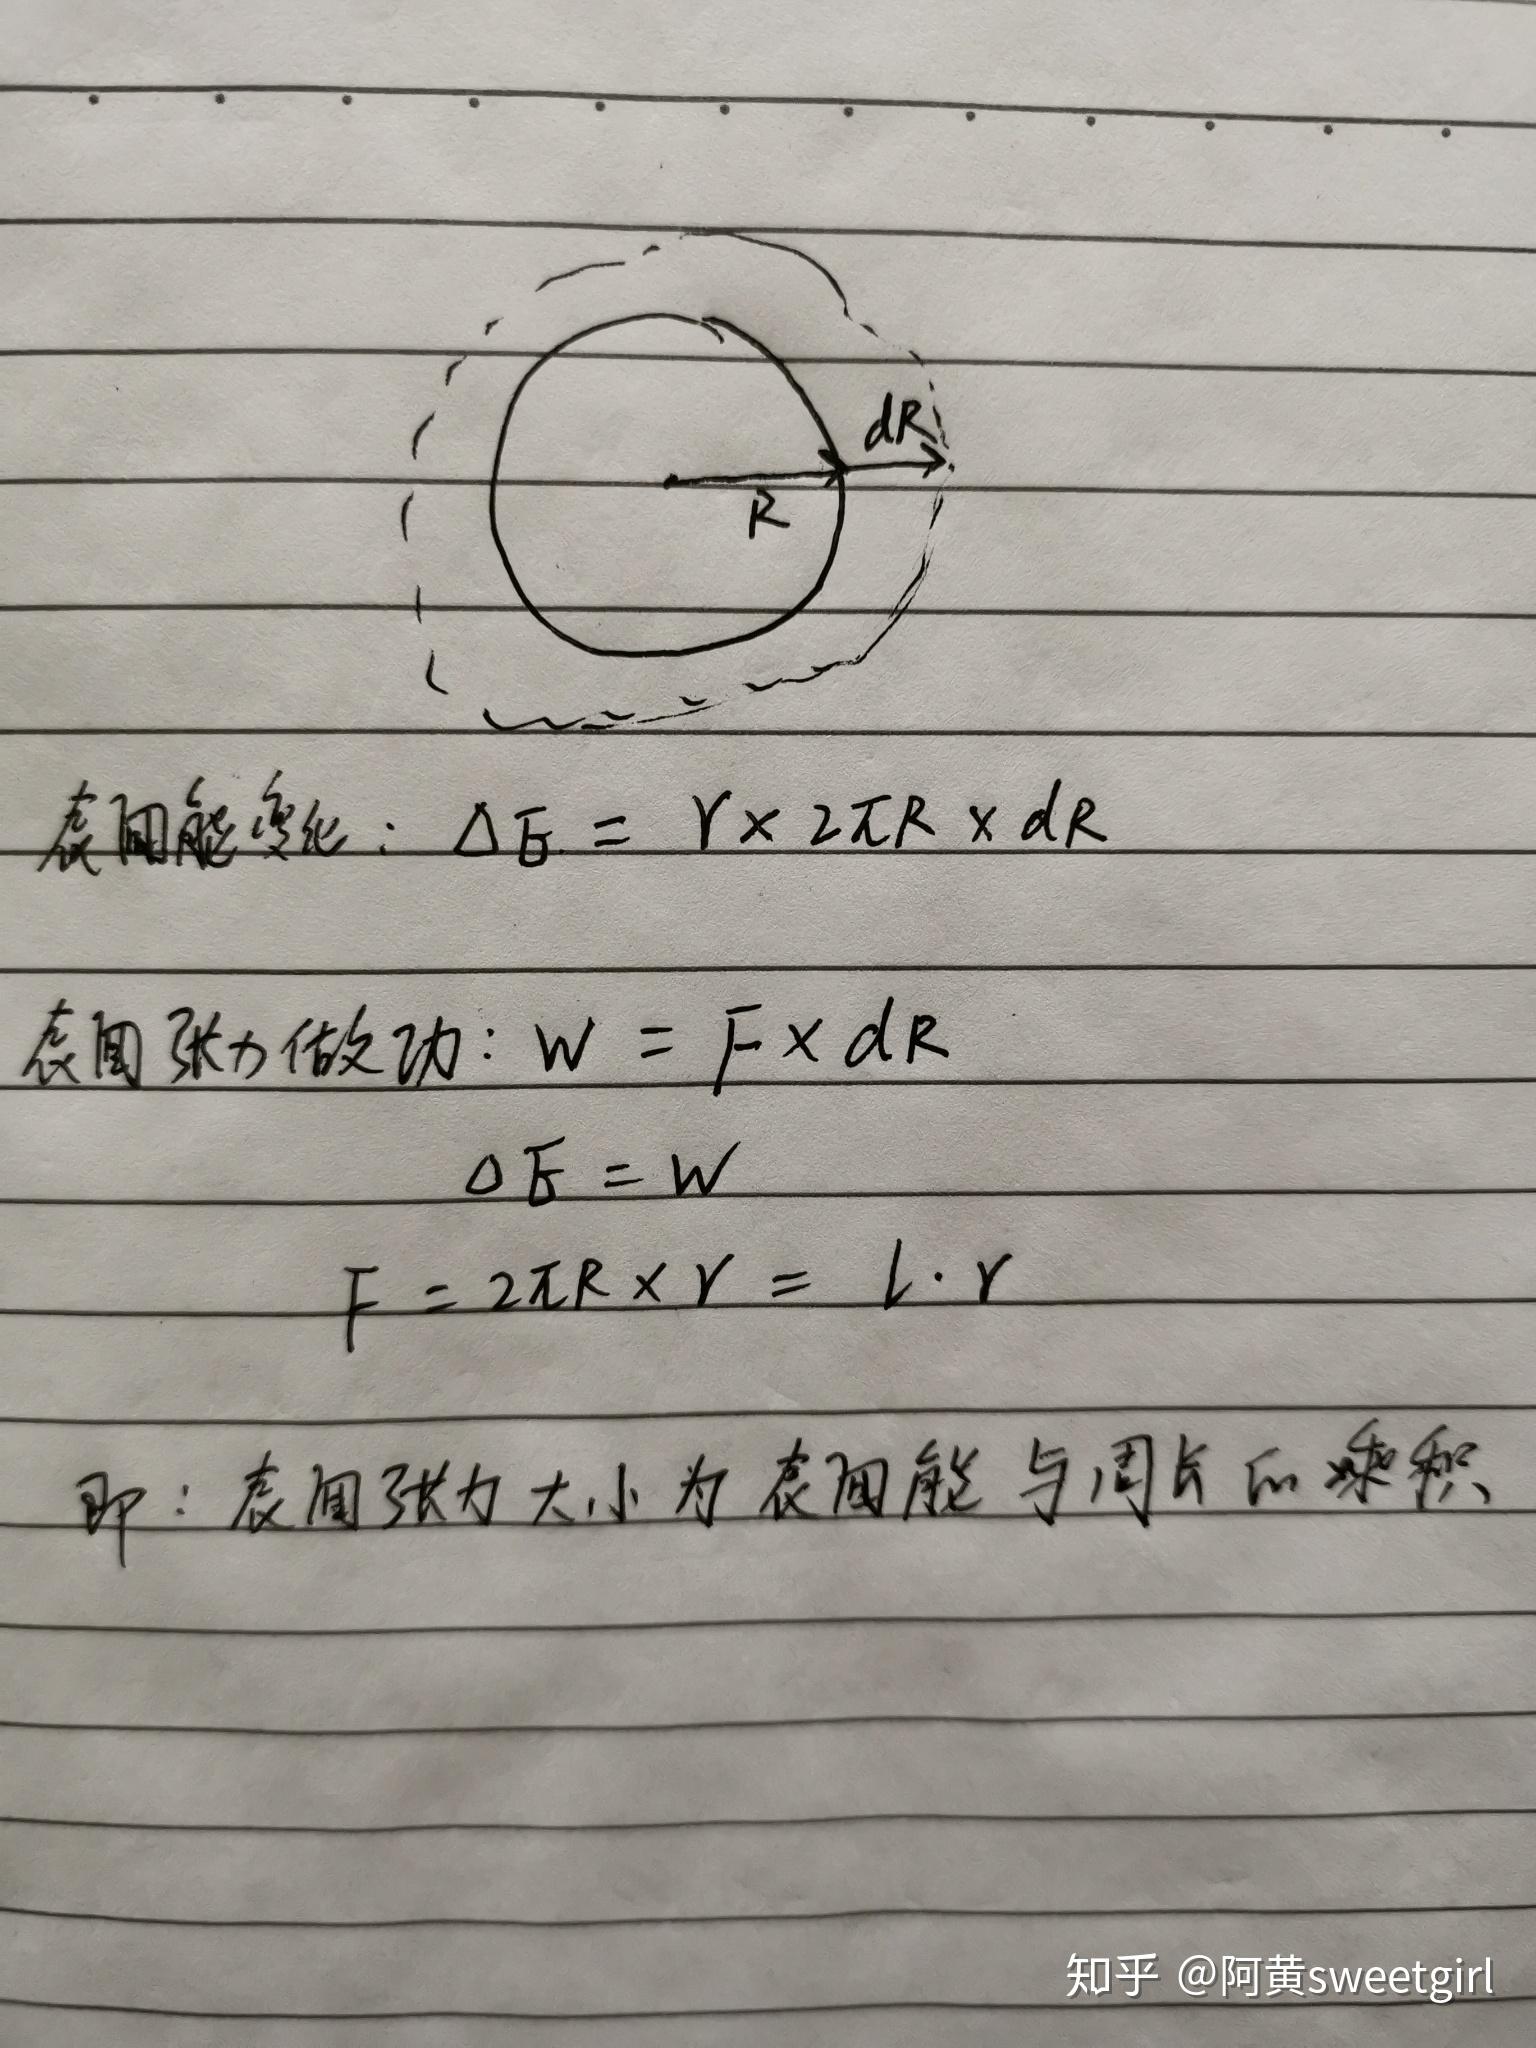 dR
R
表面能变化：ΔE = γ × 2πR × dR
表面张力做功：W = F × dR
ΔE = W
F = 2πR × γ = l · γ
即：表面张力大小为表面能与周长的乘积
知乎 @阿黄sweetgirl